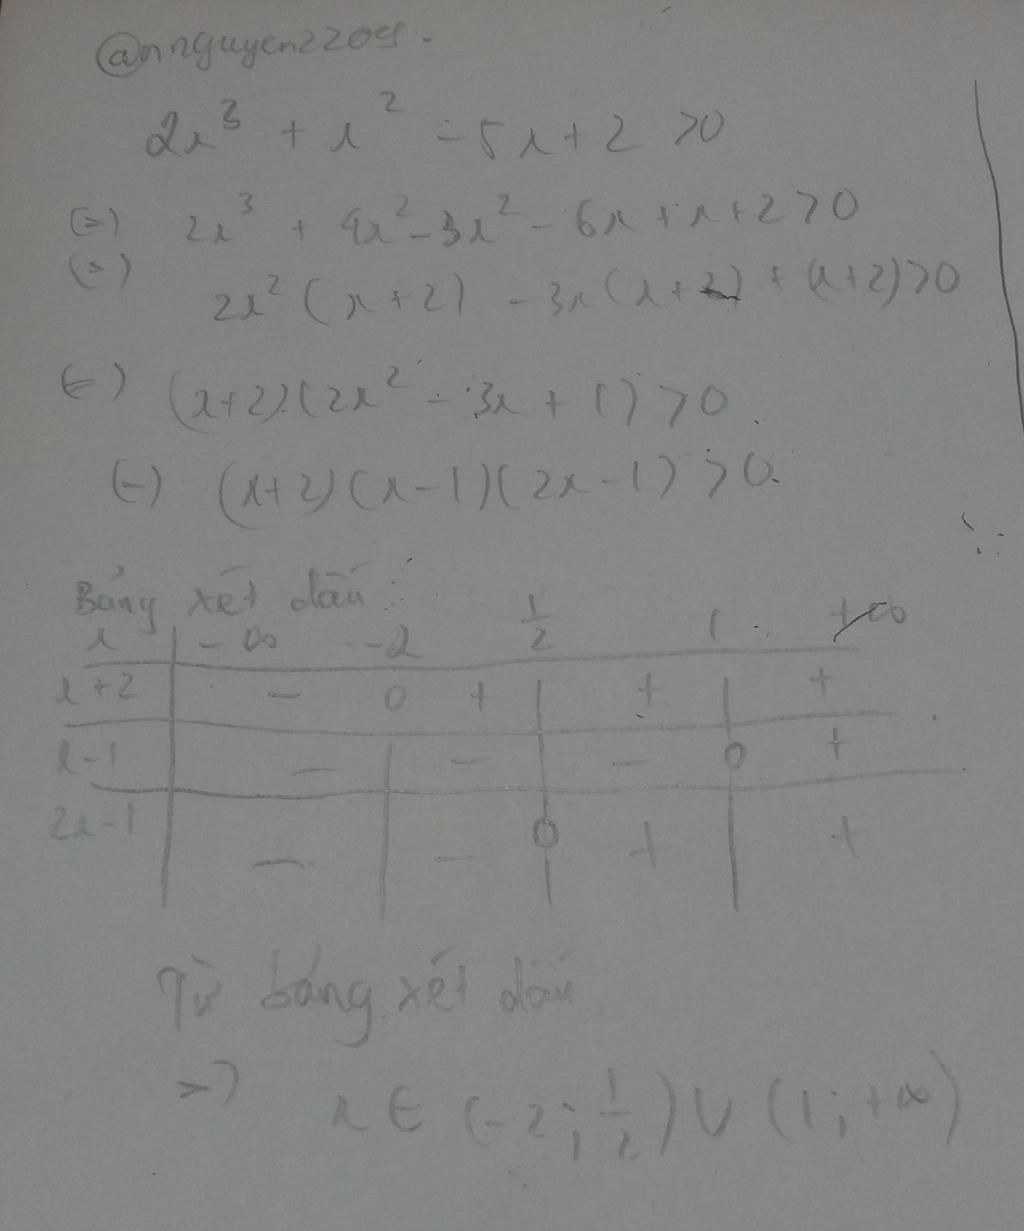 @nnguyen22054.
2x³ + x² - 5x + 2 > 0
(=) 2x³ + 4x² - 3x² - 6x + x + 2 > 0
(=) 2x² (x+2) - 3x (x+2) + (x+2) > 0
(=) (x+2).(2x² - 3x + 1) > 0.
(=) (x+2)(x-1)(2x-1) > 0.
Bảng xét dấu:
x | -∞ -2 1/2 1 +∞
x+2 | - 0 + | + | +
x-1 | - | - | - 0 +
2x-1 | - | - 0 + | +
Từ bảng xét dấu
=> x ∈ (-2; 1/2) ∪ (1; +∞)